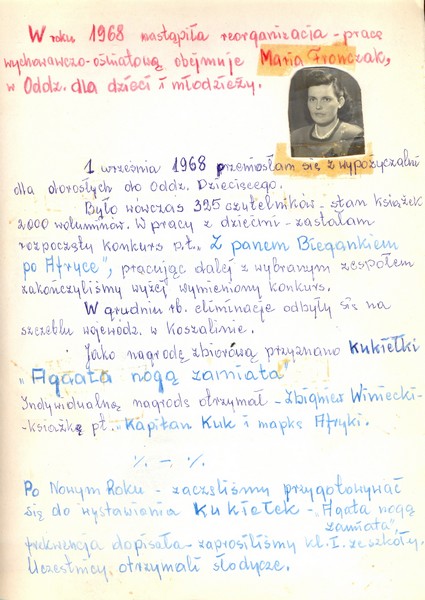 W roku 1968 nastąpiła reorganizacja - pracę
wychowawczo-oświatową obejmuje Maria Fronczak,
w Oddz. dla dzieci i młodzieży.
1 września 1968 przeniosłam się z wypożyczalni
dla dorosłych do Oddz. Dziecięcego.
Było wówczas 325 czytelników - stan książek
2000 woluminów. W pracy z dziećmi - zastałam
rozpoczęty konkurs p.t. „Z panem Biegankiem
po Afryce", pracując dalej z wybranym zespołem
zakończyliśmy wyżej wymieniony konkurs.
W grudniu rb. eliminacje odbyły się na
szczeblu wojewódz. w Koszalinie.
Jako nagrodę zbiorową przyznano kukiełki
„Agata nogą zamiata"
Indywidualną nagrodę otrzymał - Zbigniew Winiecki-
-książkę pt. „Kapitan Kuk i mapkę Afryki.
%. — %.
Po Nowym Roku - zaczęliśmy przygotowywać
się do wystawienia kukiełek - „Agata nogą
zamiata",
frekwencja dopisała - zaprosiliśmy kl. I. ze szkoły.
Uczestnicy otrzymali słodycze.